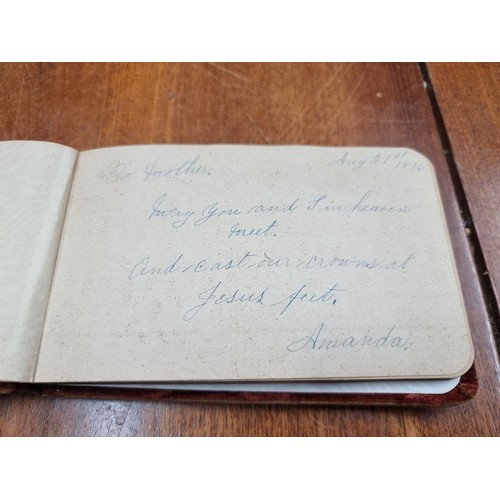 To Mother. Aug 21st
1896
May you and I in heaven
meet.
And cast our crowns at
Jesus feet.
Amanda.